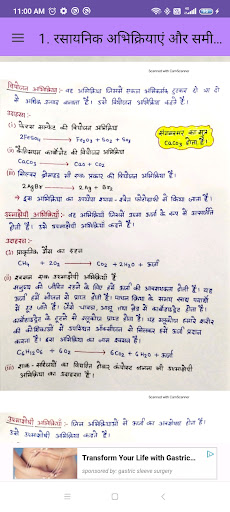 11:00 AM
1. रसायनिक अभिक्रियाएं और समी...
Scanned with CamScanner
वियोजन अभिक्रिया :- वह अभिक्रिया जिसमें एकल अभिकर्मक टूटकर दो या दो
से अधिक उत्पाद बनाता है। उसे वियोजन अभिक्रिया कहते हैं।
उदाहरण :-
(i) फेरस सल्फेट की वियोजन अभिक्रिया
2FeSO4 → Fe2O3 + SO2 + SO3
संगमरमर का सूत्र
CaCO3 होता है।
(ii) कैल्सियम कार्बोनेट की वियोजन अभिक्रिया
CaCO3 → CaO + CO2
(iii) सिल्वर ब्रोमाइड भी एक प्रकार की वियोजन अभिक्रिया है।
2AgBr → 2Ag + Br2
→ इस अभिक्रिया का उपयोग श्याम-श्वेत फोटोग्राफी में किया जाता है।
ऊष्माक्षेपी अभिक्रियाएँ :- वह अभिक्रियाएँ जिसमें उत्पाद ऊर्जा के रूप में
है। उसे ऊष्माक्षेपी अभिक्रिया कहते हैं।
उदाहरण :-
(i) प्राकृतिक गैस का दहन
CH4 + 2O2 → CO2 + 2H2O + ऊर्जा
(ii) श्वसन एक ऊष्माक्षेपी अभिक्रिया है
मनुष्य को जीवित रहने के लिए हमें ऊर्जा की आवश्यकता होती है। यह
ऊर्जा हमें भोजन से प्राप्त होती है। पाचन क्रिया के समय खाद्य पदार्थ
में टूट जाते हैं। जैसे चावल, आलू तथा ब्रेड में कार्बोहाइड्रेट होता है।
कार्बोहाइड्रेट के टूटने से ग्लूकोज प्राप्त होता है। यह ग्लूकोज हमारे शरीर
की कोशिकाओं में उपस्थित ऑक्सीजन से मिलकर हमें ऊर्जा प्रदान
करता है। इस अभिक्रिया का नाम श्वसन है।
C6H12O6 + 6O2 → 6CO2 + 6H2O + ऊर्जा
(iii) शाक-सब्जियों का विघटित होकर कंपोस्ट बनना भी ऊष्माक्षेपी
अभिक्रिया का उदाहरण है।
Scanned with CamScanner
ऊष्माशोषी अभिक्रिया :- जिस अभिक्रियाओं में ऊर्जा का अवशोषण होता है।
उसे ऊष्माशोषी अभिक्रिया कहते हैं।
Transform Your Life with Gastric...
sponsored by: gastric sleeve surgery